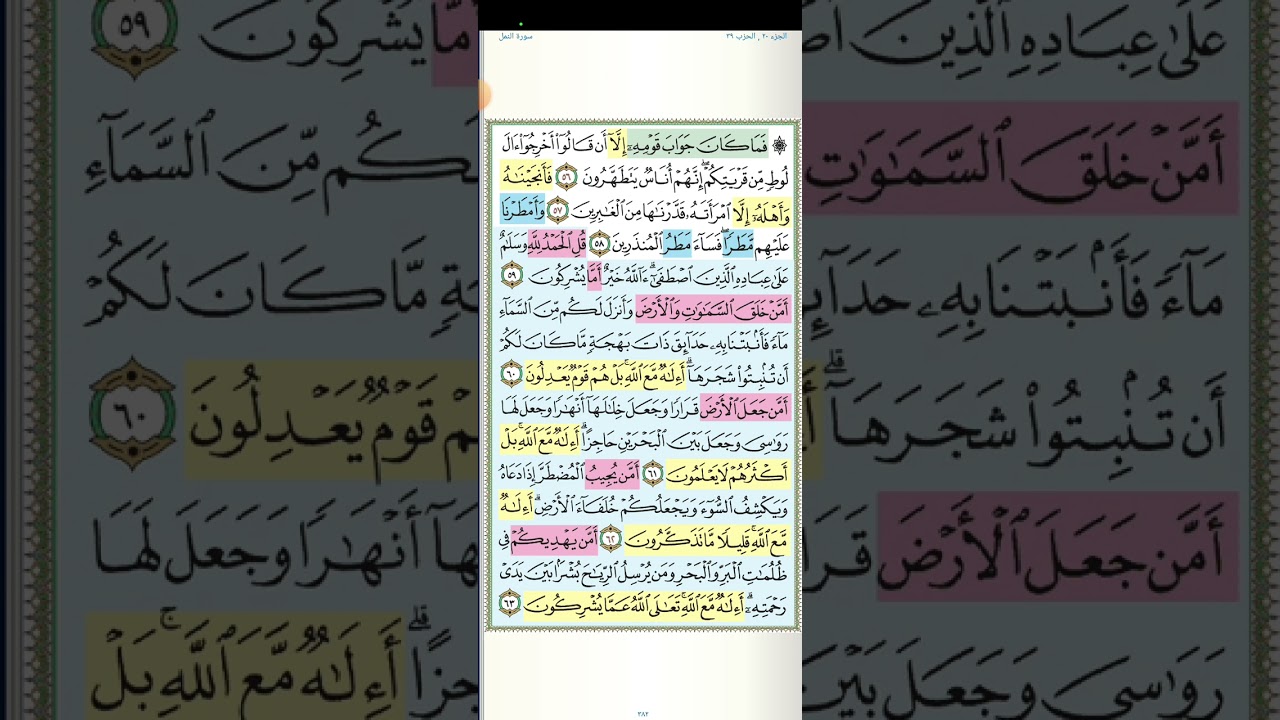 الجزء ٢٠ , الحزب ٣٩
سورة النمل
۞ فَمَا كَانَ جَوَابَ قَوْمِهِۦٓ إِلَّآ أَن قَالُوٓا۟ أَخْرِجُوٓا۟ ءَالَ
لُوطٍ مِّن قَرْيَتِكُمْ ۖ إِنَّهُمْ أُنَاسٌ يَتَطَهَّرُونَ ٥٦ فَأَنجَيْنَـٰهُ
وَأَهْلَهُۥٓ إِلَّا ٱمْرَأَتَهُۥ قَدَّرْنَـٰهَا مِنَ ٱلْغَـٰبِرِينَ ٥٧ وَأَمْطَرْنَا
عَلَيْهِم مَّطَرًا ۖ فَسَآءَ مَطَرُ ٱلْمُنذَرِينَ ٥٨ قُلِ ٱلْحَمْدُ لِلَّهِ وَسَلَـٰمٌ
عَلَىٰ عِبَادِهِ ٱلَّذِينَ ٱصْطَفَىٰٓ ۗ ءَآللَّهُ خَيْرٌ أَمَّا يُشْرِكُونَ ٥٩
أَمَّنْ خَلَقَ ٱلسَّمَـٰوَٰتِ وَٱلْأَرْضَ وَأَنزَلَ لَكُم مِّنَ ٱلسَّمَآءِ
مَآءً فَأَنۢبَتْنَا بِهِۦ حَدَآئِقَ ذَاتَ بَهْجَةٍ مَّا كَانَ لَكُمْ
أَن تُنۢبِتُوا۟ شَجَرَهَآ ۗ أَءِلَـٰهٌ مَّعَ ٱللَّهِ ۚ بَلْ هُمْ قَوْمٌ يَعْدِلُونَ ٦٠
أَمَّن جَعَلَ ٱلْأَرْضَ قَرَارًا وَجَعَلَ خِلَـٰلَهَآ أَنْهَـٰرًا وَجَعَلَ لَهَا
رَوَٰسِىَ وَجَعَلَ بَيْنَ ٱلْبَحْرَيْنِ حَاجِزًا ۗ أَءِلَـٰهٌ مَّعَ ٱللَّهِ ۚ بَلْ
أَكْثَرُهُمْ لَا يَعْلَمُونَ ٦١ أَمَّن يُجِيبُ ٱلْمُضْطَرَّ إِذَا دَعَاهُ
وَيَكْشِفُ ٱلسُّوٓءَ وَيَجْعَلُكُمْ خُلَفَآءَ ٱلْأَرْضِ ۗ أَءِلَـٰهٌ
مَّعَ ٱللَّهِ ۚ قَلِيلًا مَّا تَذَكَّرُونَ ٦٢ أَمَّن يَهْدِيكُمْ فِى
ظُلُمَـٰتِ ٱلْبَرِّ وَٱلْبَحْرِ وَمَن يُرْسِلُ ٱلرِّيَـٰحَ بُشْرًۢا بَيْنَ يَدَىْ
رَحْمَتِهِۦٓ ۗ أَءِلَـٰهٌ مَّعَ ٱللَّهِ ۚ تَعَـٰلَى ٱللَّهُ عَمَّا يُشْرِكُونَ ٦٣
٣٨٢